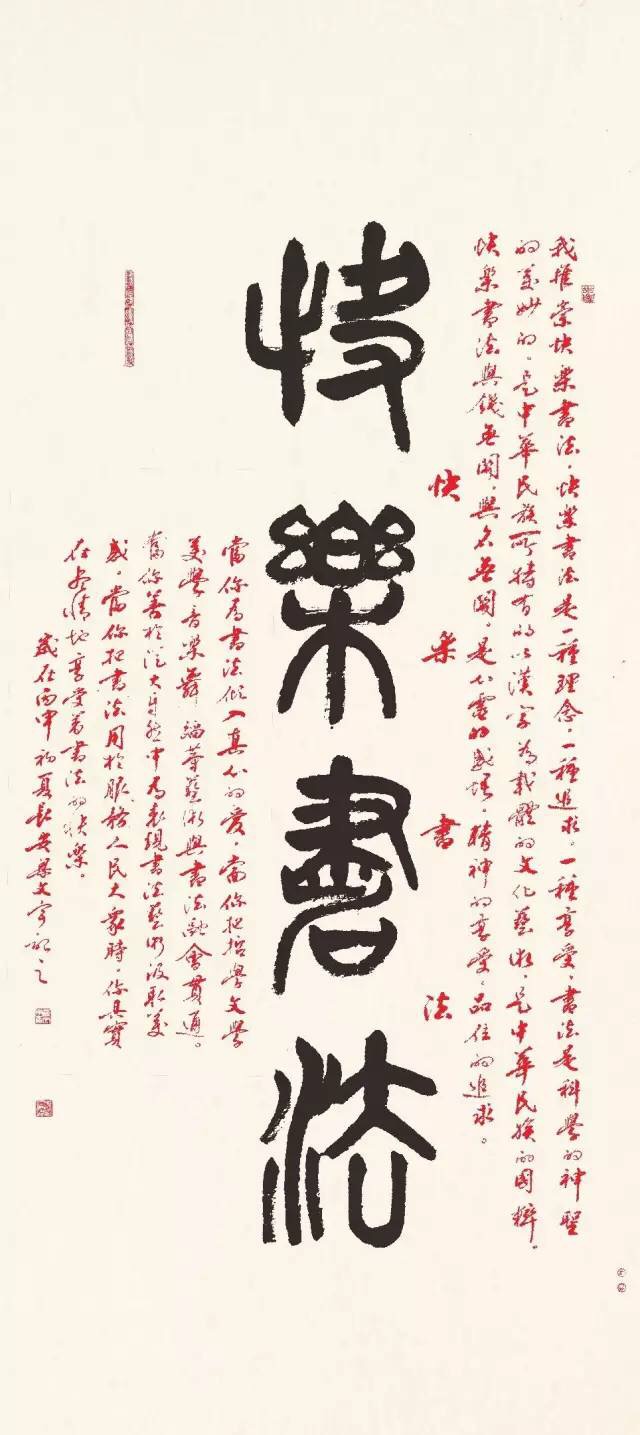 我推崇快樂書法，快樂書法是一種理念，一種追求，一種享受，書法是科學的神聖
的美妙的。是中華民族所特有的以漢字為載體的文化藝術，是中華民族的國粹。
快樂書法與錢無關，與名無關，是心靈的感悟，精神的享受，品位的追求。
快樂書法
快樂書法
當你為書法傾入真心的愛，當你把哲學文學
美學音樂舞蹈等藝術與書法融會貫通。
當你善於從大自然中為表現書法藝術汲取美
感，當你把書法用於服務人民大眾時，你其實
在盡情地享受着書法的快樂。
歲在丙申初夏長安吳文宇記之